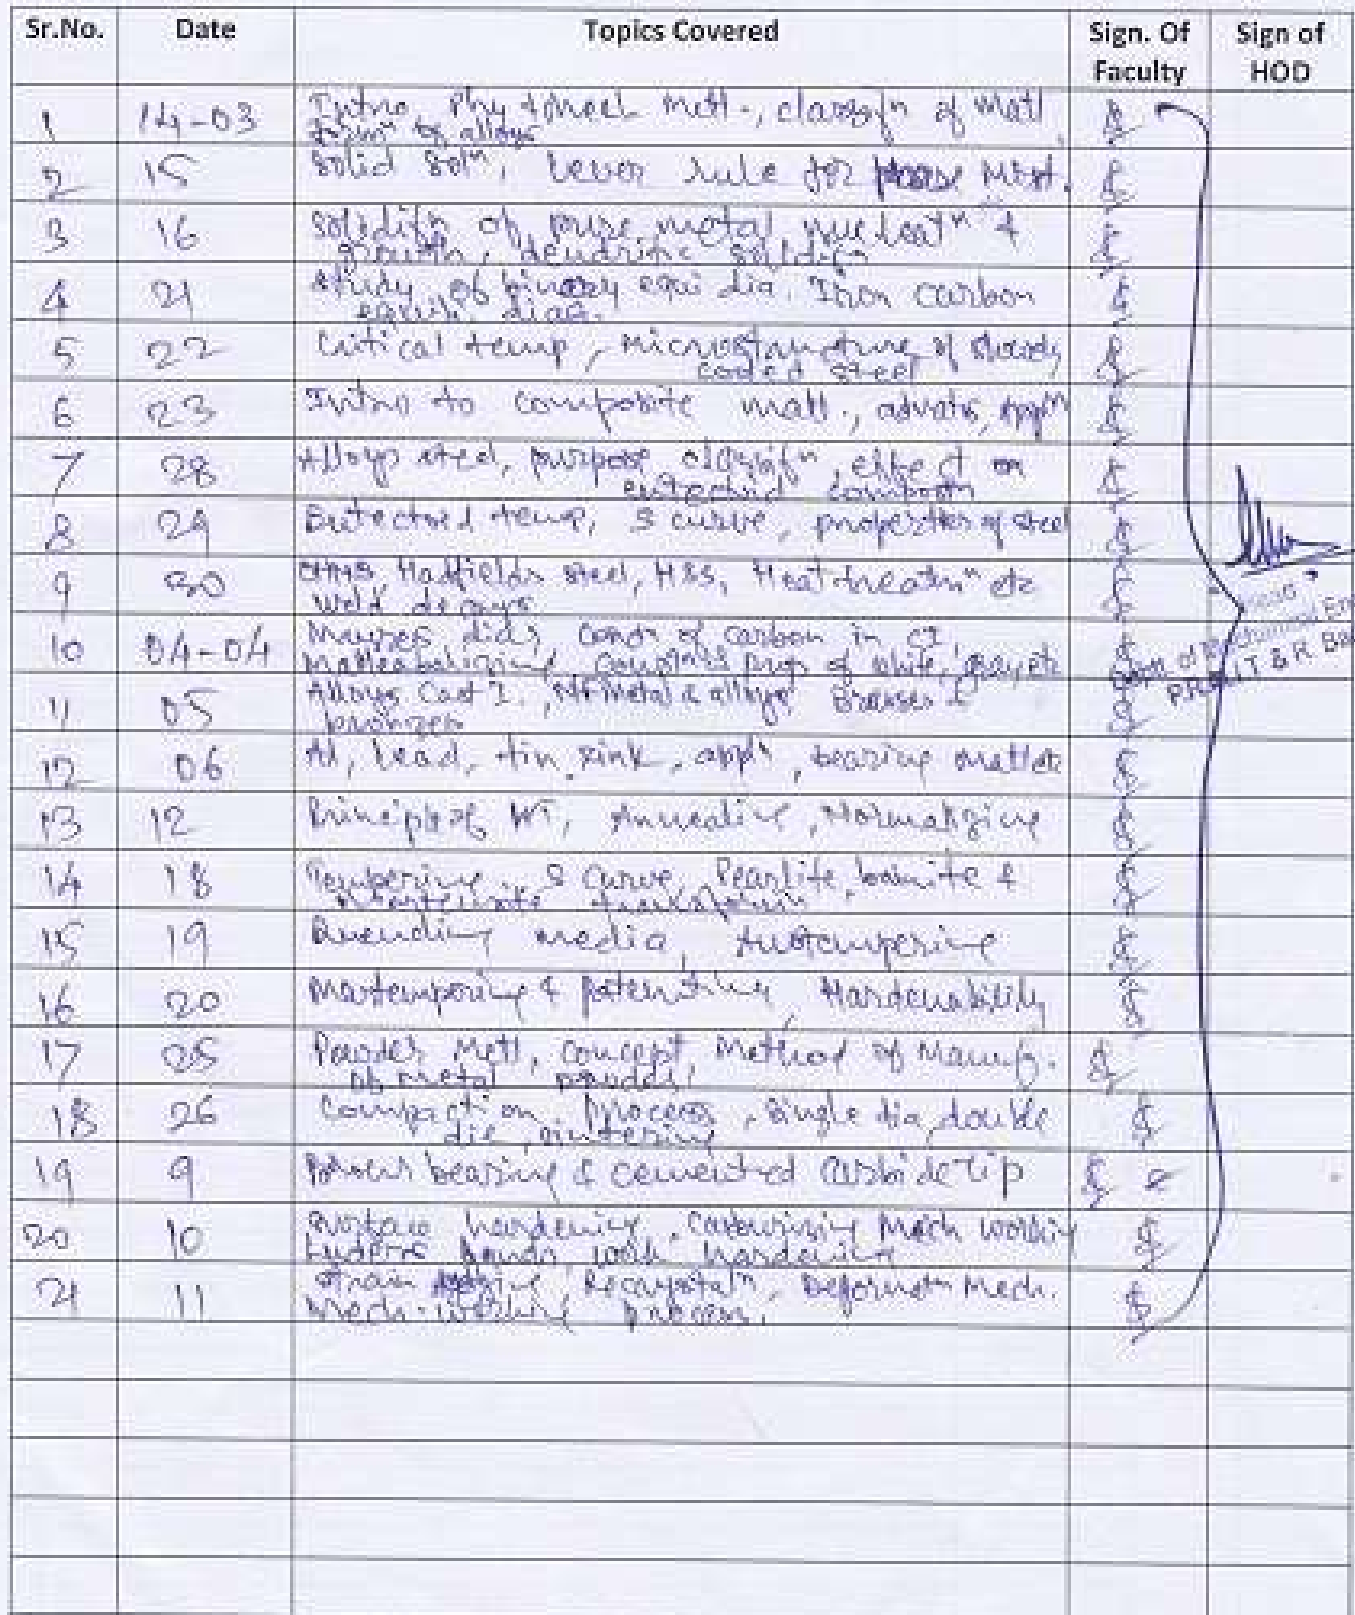 Sr.No. Date Topics Covered Sign. Of Faculty Sign of HOD
1 14-03 Intro, Phy & mech metl., classifn of matl
of alloys
2 15 Solid soln, Lever rule for phase
3 16 Solidifn of pure metal nucleatn &
growth, dendritic solidifn
4 21 Study of binary equi dia. Iron carbon
equili. diag.
5 22 Critical temp, microstructure of slowly
cooled steel
6 23 Intro to composite matl., advats, appln
7 28 Alloys steel, purpose classifn, effect on
eutectoid compositn
8 29 Eutectoid temp, S curve, properties of steel
9 30 OHNS, Hadfields steel, HSS, Heat treatmn etc
Weld decays
10 04-04 dia, of carbon in CI,
Malleabalizing, props of white, gray, etc
11 05 Alloys Cast I., NF metal & alloys Brasses &
bronzes
12 06 Al, Lead, tin, zink, appln, bearing
13 12 Principle of HT, Annealing, Normalizing
14 18 Tempering, S Curve, Pearlite, bainite &
martensite
15 19 media, Austempering
16 20 Martempering & patenting, Hardenability
17 05 Powder Metl, concept, Method of Manuf.
of metal
18 26 Compaction, process, single die, double
die, sintering
19 9 Porous bearing & cemented carbide tip
20 10 hardening, Carburising Mech working
bands, work hardening
21 11 Strain Recrystaln, Deformatn Mech.
Mech. working process.
Head
Dept of Mechanical